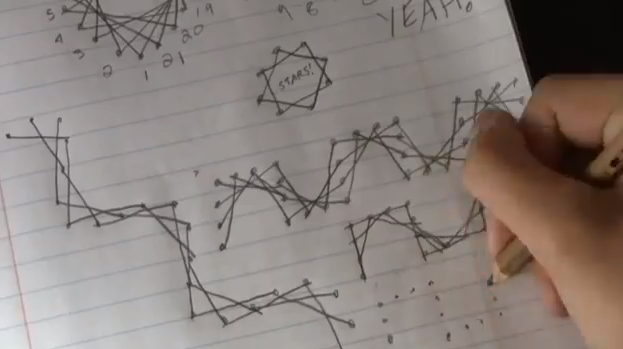 5
4
3
2
1
21
20
19
9 8
YEAH!
STARS!